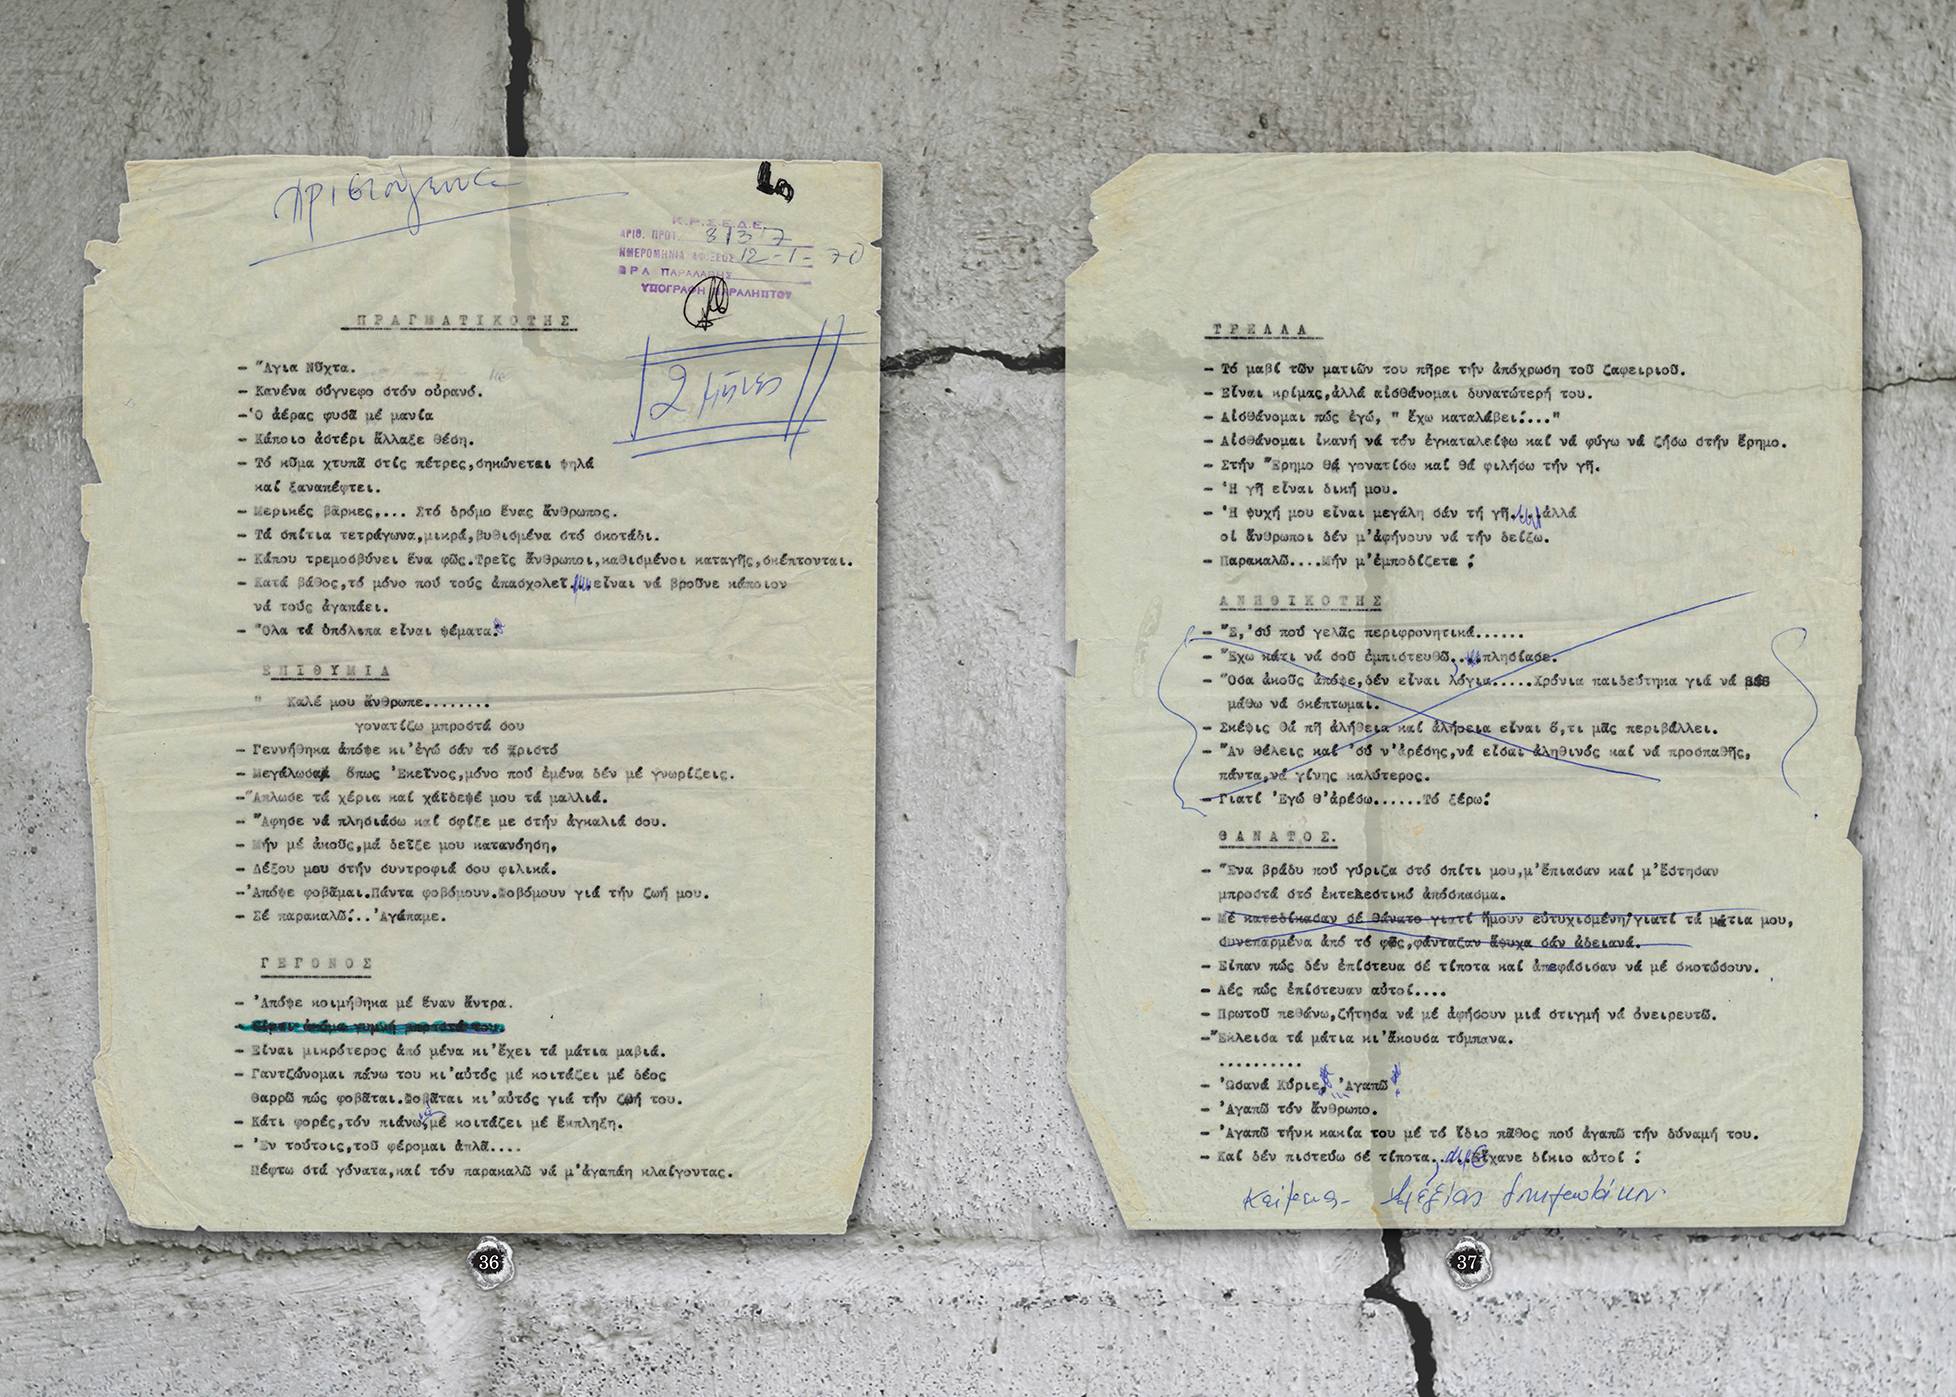 Κ.Ρ.Σ.Ε.Δ.Ε.
ΑΡΙΘ. ΠΡΩΤ. 8137
ΗΜΕΡΟΜΗΝΙΑ ΑΦΙΞΕΩΣ 12-1-70
ΩΡΑ ΠΑΡΑΛΑΒΗΣ
ΥΠΟΓΡΑΦΗ ΠΑΡΑΛΗΠΤΟΥ
2 μήνες
ΠΡΑΓΜΑΤΙΚΟΤΗΣ
- Ἅγια Νῦχτα.
- Κανένα σύγνεφο στόν οὐρανό.
-Ὁ ἀέρας φυσᾶ μέ μανία
- Κάποιο ἀστέρι ἄλλαξε θέση.
- Τό κῦμα χτυπᾶ στίς πέτρες,σηκώνεται ψηλά
καί ξαναπέφτει.
- Μερικές βᾶρκες.... Στό δρόμο ἕνας ἄνθρωπος.
- Τά σπίτια τετράγωνα,μικρά,βυθισμένα στό σκοτάδι.
- Κάπου τρεμοσβύνει ἕνα φῶς.Τρεῖς ἄνθρωποι,καθισμένοι καταγῆς,σκέπτονται.
- Κατά βάθος,τό μόνο πού τούς ἀπασχολεῖ εἶναι νά βροῦνε κάποιον
νά τούς ἀγαπάει.
- Ὅλα τά ὑπόλιπα εἶναι ψέματα.
ΕΠΙΘΥΜΙΑ
" Καλέ μου ἄνθρωπε........
γονατίζω μπροστά σου
- Γεννήθηκα ἀπόψε κι'ἐγώ σάν τό Χριστό
- Μεγάλωσα ὅπως Ἐκεῖνος,μόνο πού ἐμένα δέν μέ γνωρίζεις.
-Ἅπλωσε τά χέρια καί χάϊδεψέ μου τά μαλλιά.
- Ἄφησε νά πλησιάσω καί σφίξε με στήν ἀγκαλιά σου.
- Μήν μέ ἀκοῦς,μά δεῖξε μου κατανόηση,
- Δέξου μου στήν συντροφιά σου φιλικά.
-Ἀπόψε φοβᾶμαι.Πάντα φοβόμουν.Φοβόμουν γιά τήν ζωή μου.
- Σέ παρακαλῶ:..Ἀγάπαμε.
ΓΕΓΟΝΟΣ
- Ἀπόψε κοιμήθηκα μέ ἕναν ἄντρα.
- Εἶμαι ἀκόμα γυμνή μπροστά του.
- Εἶναι μικρότερος ἀπό μένα κι'ἔχει τά μάτια μαβιά.
- Γαντζώνομαι πάνω του κι'αὐτός μέ κοιτάζει μέ δέος
θαρρῶ πώς φοβᾶται.Φοβᾶται κι'αὐτός γιά τήν ζωή του.
- Κάτι φορές,τόν πιάνω νά μέ κοιτάζει μέ ἔκπληξη.
- Ἐν τούτοις,τοῦ φέρομαι ἁπλᾶ....
Πέφτω στά γόνατα,καί τόν παρακαλῶ νά μ'ἀγαπάη κλαίγοντας.
36
ΤΡΕΛΛΑ
- Τό μαβί τῶν ματιῶν του πῆρε τήν ἀπόχρωση τοῦ ζαφειριοῦ.
- Εἶναι κρίμας,ἀλλά αἰσθάνομαι δυνατώτερή του.
- Αἰσθάνομαι πώς ἐγώ, " ἔχω καταλάβει:..."
- Αἰσθάνομαι ἱκανή νά τόν ἐγκαταλείψω καί νά φύγω νά ζήσω στήν ἔρημο.
- Στήν Ἔρημο θά γονατίσω καί θά φιλήσω τήν γῆ.
- Ἡ γῆ εἶναι δική μου.
- Ἡ ψυχή μου εἶναι μεγάλη σάν τή γῆ....ἀλλά
οἱ ἄνθρωποι δέν μ'ἀφήνουν νά τήν δείξω.
- Παρακαλῶ....Μήν μ'ἐμποδίζετε :
ΑΝΗΘΙΚΟΤΗΣ
- Ἔ,'σύ πού γελᾶς περιφρονητικά......
- Ἔχω κάτι νά σοῦ ἐμπιστευθῶ....πλησίασε.
- Ὅσα ἀκοῦς ἀπόψε,δέν εἶναι λόγια.....Χρόνια παιδεύτηκα γιά νά
μάθω νά σκέπτωμαι.
- Σκέψις θά πῆ ἀλήθεια καί ἀλήθεια εἶναι ὅ,τι μᾶς περιβάλλει.
- Ἄν θέλεις καί 'σύ ν'ἀρέσης,νά εἶσαι ἀληθινός καί νά προσπαθῆς,
πάντα,νά γίνης καλύτερος.
- Γιατί Ἐγώ θ'ἀρέσω......Τό ξέρω:
ΘΑΝΑΤΟΣ.
- Ἕνα βράδυ πού γύριζα στό σπίτι μου,μ'ἔπιασαν καί μ'ἔστησαν
μπροστά στό ἐκτελεστικό ἀπόσπασμα.
- Μέ κατεδίκασαν σέ θάνατο γιατί ἤμουν εὐτυχισμένη/γιατί τά μάτια μου,
συνεπαρμένα ἀπό τό φῶς,φάνταζαν ἄψυχα σάν ἀδειανά.
- Εἶπαν πώς δέν ἐπίστευα σέ τίποτα καί ἀπεφάσισαν νά μέ σκοτώσουν.
- Λές πώς ἐπίστευαν αὐτοί....
- Πρωτοῦ πεθάνω,ζήτησα νά μέ ἀφήσουν μιά στιγμή νά ὀνειρευτῶ.
-Ἔκλεισα τά μάτια κι'ἄκουσα τύμπανα.
..........
- Ὡσανά Κύριε, Ἀγαπῶ
- Ἀγαπῶ τόν ἄνθρωπο.
- Ἀγαπῶ τήνκ κακία του μέ τό ἴδιο πᾶθος πού ἀγαπῶ τήν δύναμή του.
- Καί δέν πιστεύω σέ τίποτα....Εἴχανε δίκιο αὐτοί :
Κείμενα
37